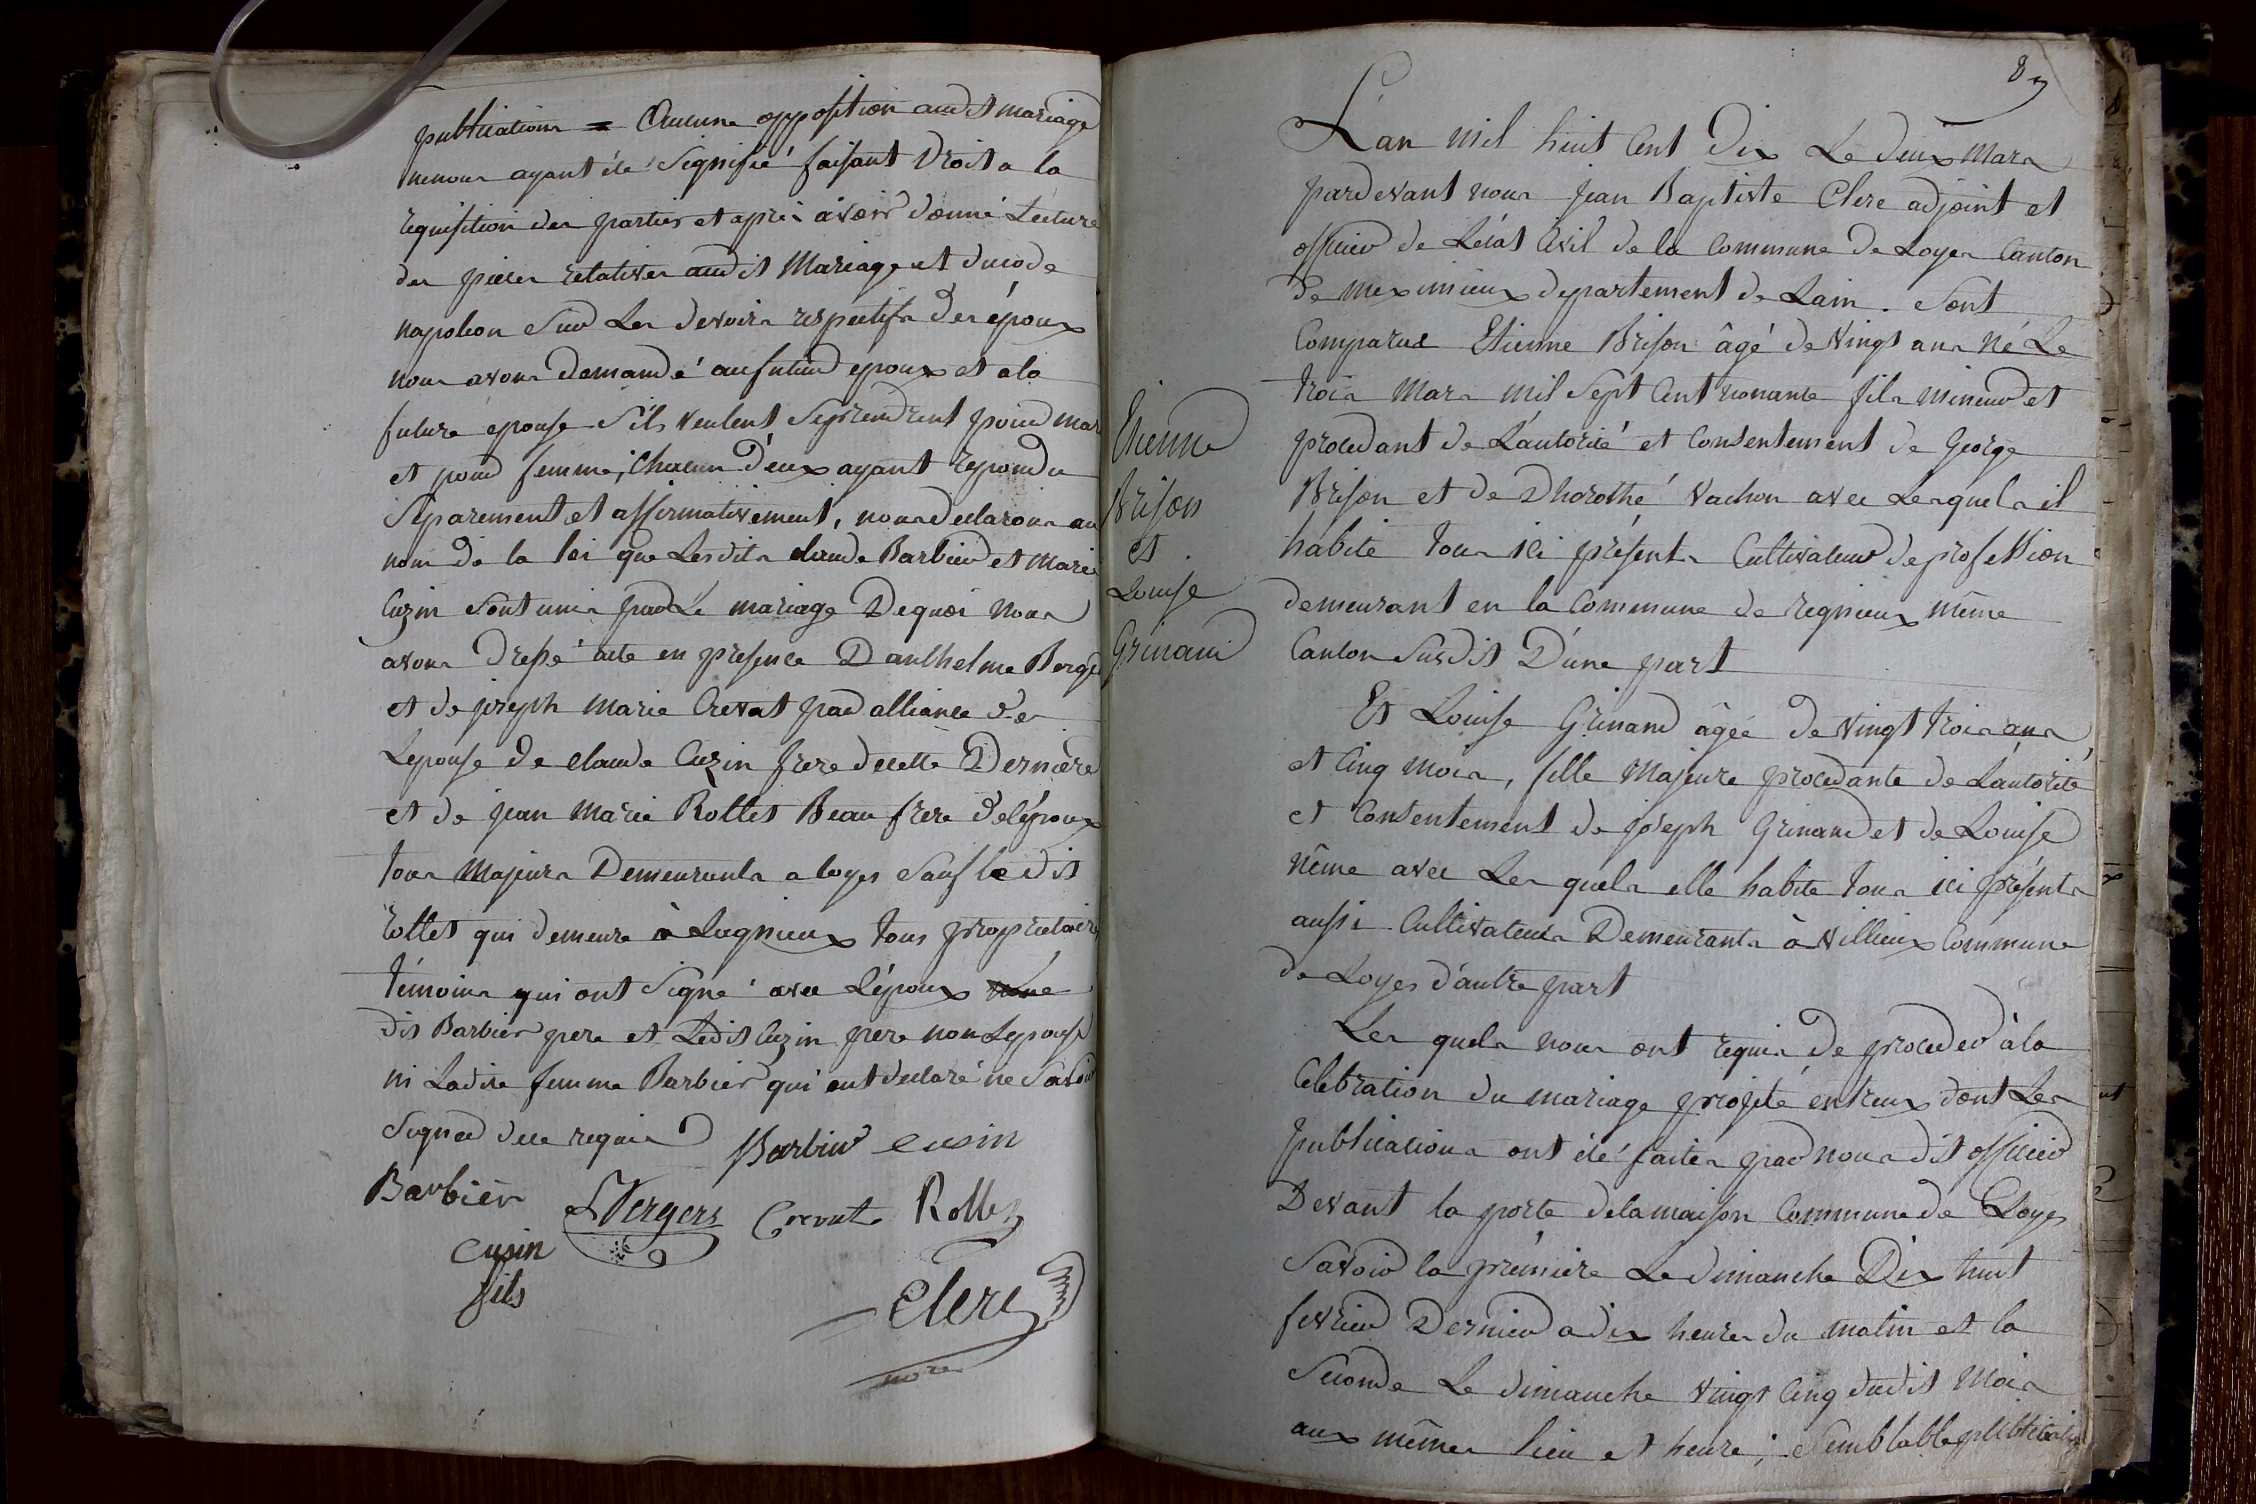 publications = Aucune opposition audit mariage
ne nous ayant été signifié faisant Droit a la
requisition des parties et après avoir donné Lecture
des pieces relatives audit Mariage et du code
napoleon sur Les devoirs respectifs des époux
nous avons demandé au futur epoux et a la
future epouse s'ils veulent se prendrent pour mari
et pour femme, chacun d'eux ayant repondu
séparement et affirmativement, nous declarons au
nom de la loi que Lesdits claude Barbier et Marie
Cuzin sont unis par Le mariage De quoi nous
avons dressé acte en presence D'anthelme Berger
et de joseph marie Crevat par alliance de
Lepouse de claude Cuzin frere de cette Dernière
et de jean marie Rollet Beau frere de l'époux
tous Majeurs Demeurants a loyes sauf le dit
rollet qui demeure à Lagnieux tous proprietaires
témoins qui ont signé avec L'époux
dit Barbier pere et Ledit Cuzin pere non Lepouse
ni Ladite femme Barbier qui ont declaré ne savoir
signer de ce requis Barbier cusin
Barbier Vergers Crevat Rollet
cusin
fils
Clerc
8
L'an mil huit Cent Dix Le deux Mars
pardevant nous jean Baptiste Clerc adjoint et
officier de L'état Civil de la Commune de Loyes Canton
de meximieux departement de Lain. sont
Comparus Etienne Brison âgé de vingt ans né Le
trois Mars mil sept Cent nonante fils mineur et
procedant de L'autorité et Consentement de George
Brison et de Dhorothé Vachon avec Lesquels il
habite tous ici présents Cultivateur de profession
demeurant en la Commune de regnieux même
Canton susdit D'une part
Etienne
Brison
et
Louise
Grinand
Et Louise Grinand âgée de vingt trois ans
et Cinq mois, fille Majeure procedante de L'autorité
et Consentement de joseph Grinand et de Louise
Nême avec Les quels elle habite tous ici présents
aussi Cultivateurs Demeurants à Villieux Commune
de Loyes d'autre part
Les quels nous ont requis de proceder à la
Célébration du mariage projeté entreux dont Les
publications ont été faites par nous dit officier
Devant la porte de la maison Commune de Loyes
savoir la première Le dimanche Dix huit
fevrier Dernier a dix heures du matin et la
seconde Le dimanche vingt Cinq dudit Mois
aux mêmes lieu et heure, semblable publication